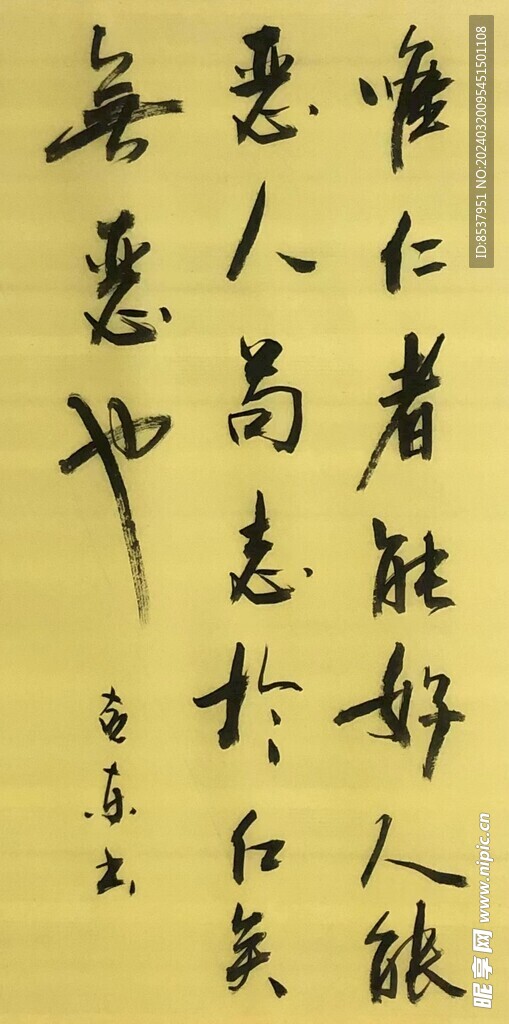 唯仁者能好人能
恶人苟志於仁矣
無恶也
东书
ID:8537951 NO:20240320095451501108
昵享网 www.nipic.cn